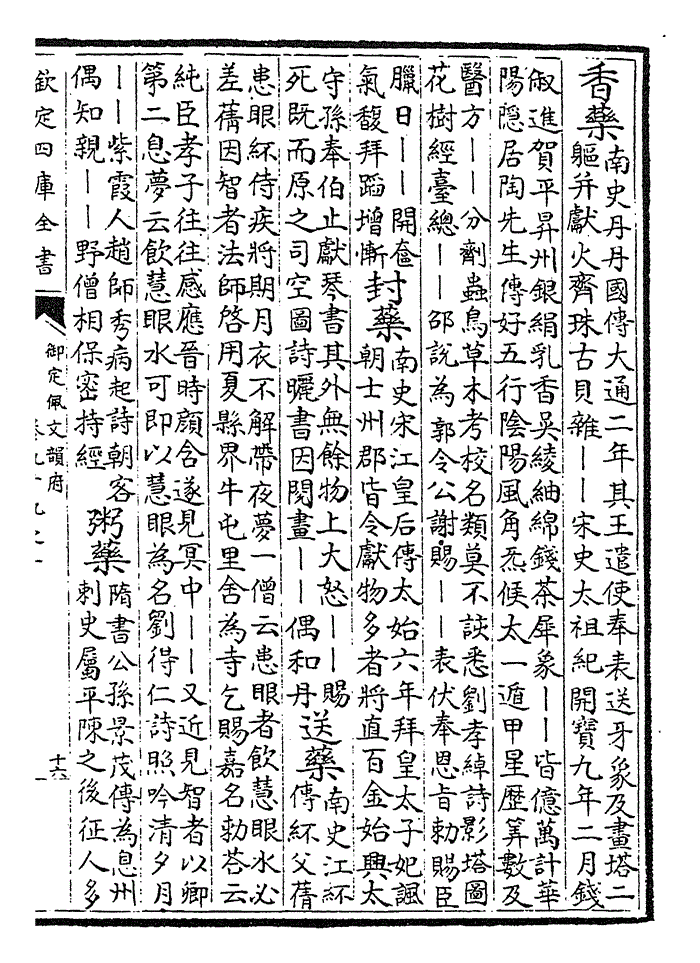 香藥
南史丹丹國傳大通二年其王遣使奉表送牙象及畫塔二
軀并獻火齊珠古貝雜——宋史太祖紀開寶九年二月錢
俶進賀平昇州銀絹乳香吳綾紬綿錢茶犀象——皆億萬計華
陽隱居陶先生傳好五行陰陽風角炁候太一遁甲星歷筭數及
醫方——分劑蟲鳥草木考校名類莫不該悉劉孝綽詩影塔圖
花樹經臺總——邵說為郭令公謝賜——表伏奉恩旨勅賜臣
臘日——開奩
氣馥拜蹈增慚
封藥
南史宋江皇后傳太始六年拜皇太子妃諷
朝士州郡皆令獻物多者將直百金始興太
守孫奉伯止獻琴書其外無餘物上大怒——賜
死既而原之司空圖詩曬書因閱畫——偶和丹
送藥
南史江紑
傳紑父蒨
患眼紑侍疾將期月衣不解帶夜夢一僧云患眼者飲慧眼水必
差蒨因智者法師啓用夏縣界牛屯里舍為寺乞賜嘉名勅荅云
純臣孝子往往感應晉時顏含遂見冥中——又近見智者以卿
第二息夢云飲慧眼水可即以慧眼為名劉得仁詩照吟清夕月
——紫霞人趙師秀病起詩朝客
偶知親——野僧相保密持經
粥藥
隋書公孫景茂傳為息州
刺史屬平陳之後征人多
欽定四庫全書
御定佩文韻府
卷九十九之一
十六